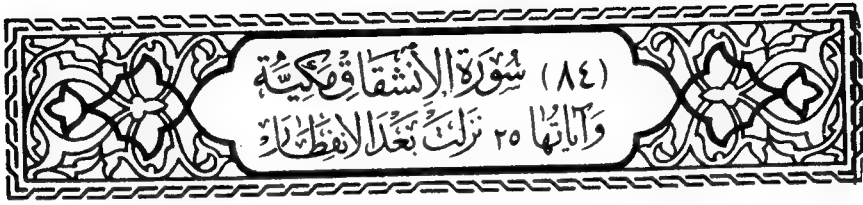 (٨٤) سُورَةُ الْاِنْشِقَاقِ مَكِيَّة
وَآيَاتُهَا ٢٥ نَزَلَتْ بَعْدَ الْاِنْفِطَارِ